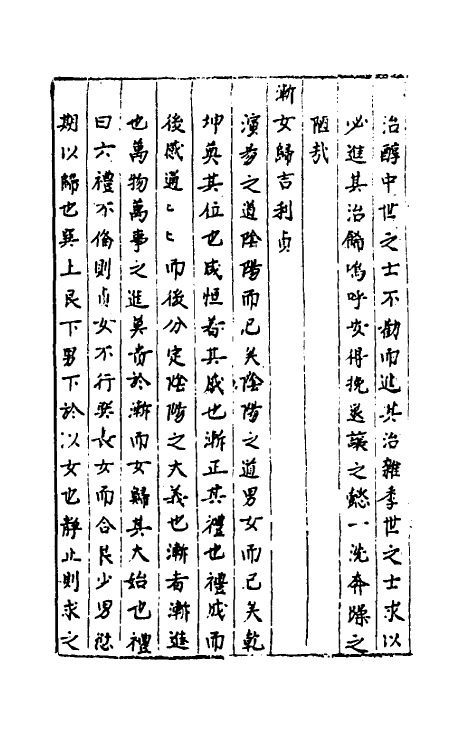 治醇中世之士不勸而進其治雜季世之士求以
必進其治餙嗚呼安得挽退讓之懿一洗奔躁之
陋哉
漸女歸吉利貞
演易之道陰陽而已矣陰陽之道男女而已矣乾
坤奠其位也咸恒者其感也漸正其禮也禮成而
後感通〻〻而後分定陰陽之大義也漸者漸進
也萬物萬事之進莫貴於漸而女歸其大始也禮
曰六禮不備則貞女不行巽長女而合艮少男愆
期以歸也巽上艮下男下於以女也靜止則求之